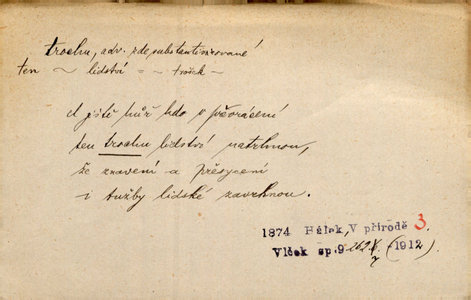 trochu, adv. zde substantivisované!
ten ~ lidství = ~ trošek ~
A ještě hůř kdo v převrácení
ten trochu lidství natrhnou,
že znaveni a přesyceni
i tužby lidské zavrhnou.
1874 Hálek, V přírodě 3.
Vlček sp. 9 262 (1912)